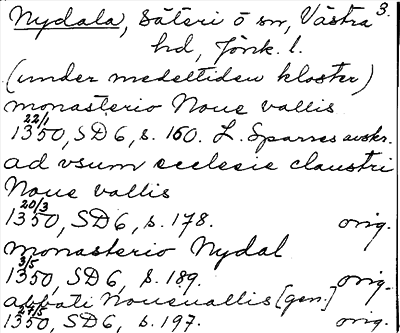 Nydala, säteri o sn, Västra 3.
hd, Jönk. l.
(under medeltiden kloster)
monasterio Noue vallis
22/1
1350, SD 6, s. 160. L. Sparres avskr.
ad vsum ecclesie claustri
Noue vallis
20/3
1350, SD 6, s. 178. orig.
monasterio Nydal
3/5
1350, SD 6, s. 189. orig.
abbati Noueuallis [gen.]
27/5
1350, SD 6, s. 197. orig.